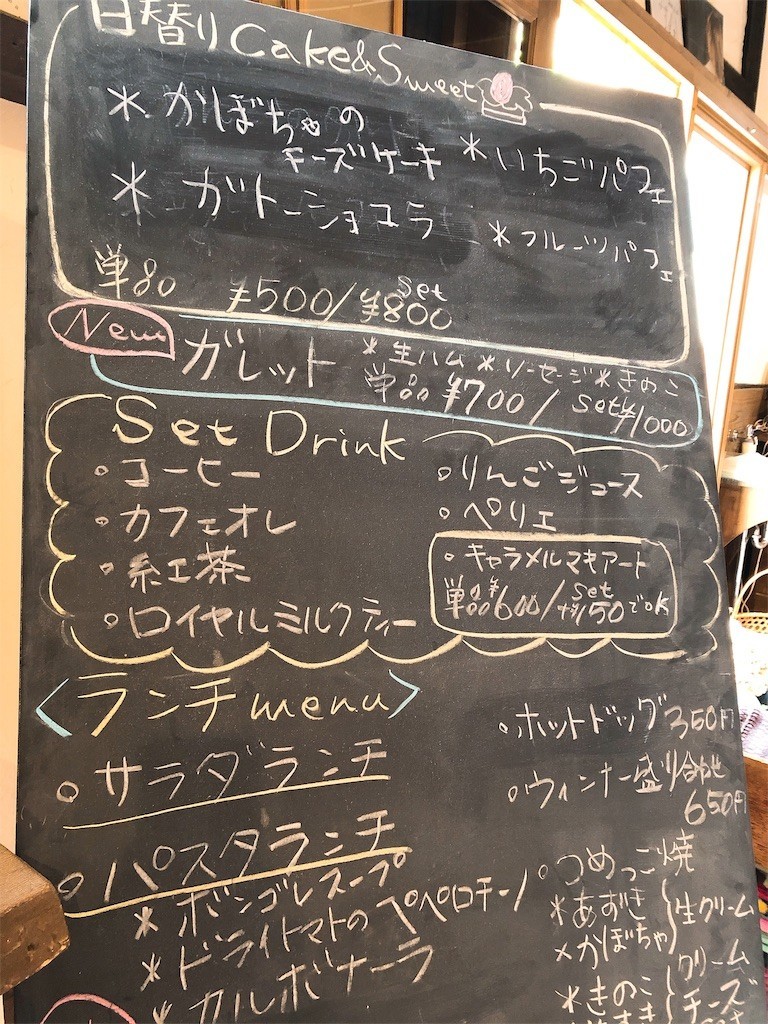 日替り Cake&Sweet
*かぼちゃの
チーズケーキ
*いちごパフェ
*ガトーショコラ
*フルーツパフェ
単品 ¥500/Set ¥800
New ガレット *生ハム *ソーセージ *きのこ
単品 ¥700/Set ¥1000
Set Drink
・コーヒー
・カフェオレ
・紅茶
・ロイヤルミルクティー
・りんごジュース
・ペリエ
・キャラメルマキアート
単品 ¥600/Set +¥150でOK
<ランチmenu>
・サラダランチ
・パスタランチ
*ボンゴレスープ
*ドライトマトのペペロチーノ
*カルボナーラ
・ホットドッグ 350円
・ウィンナー盛り合わせ
650円
・つめっこ焼
*あずき
*かぼちゃ
}生クリーム
*きのこ
}クリーム
チーズ